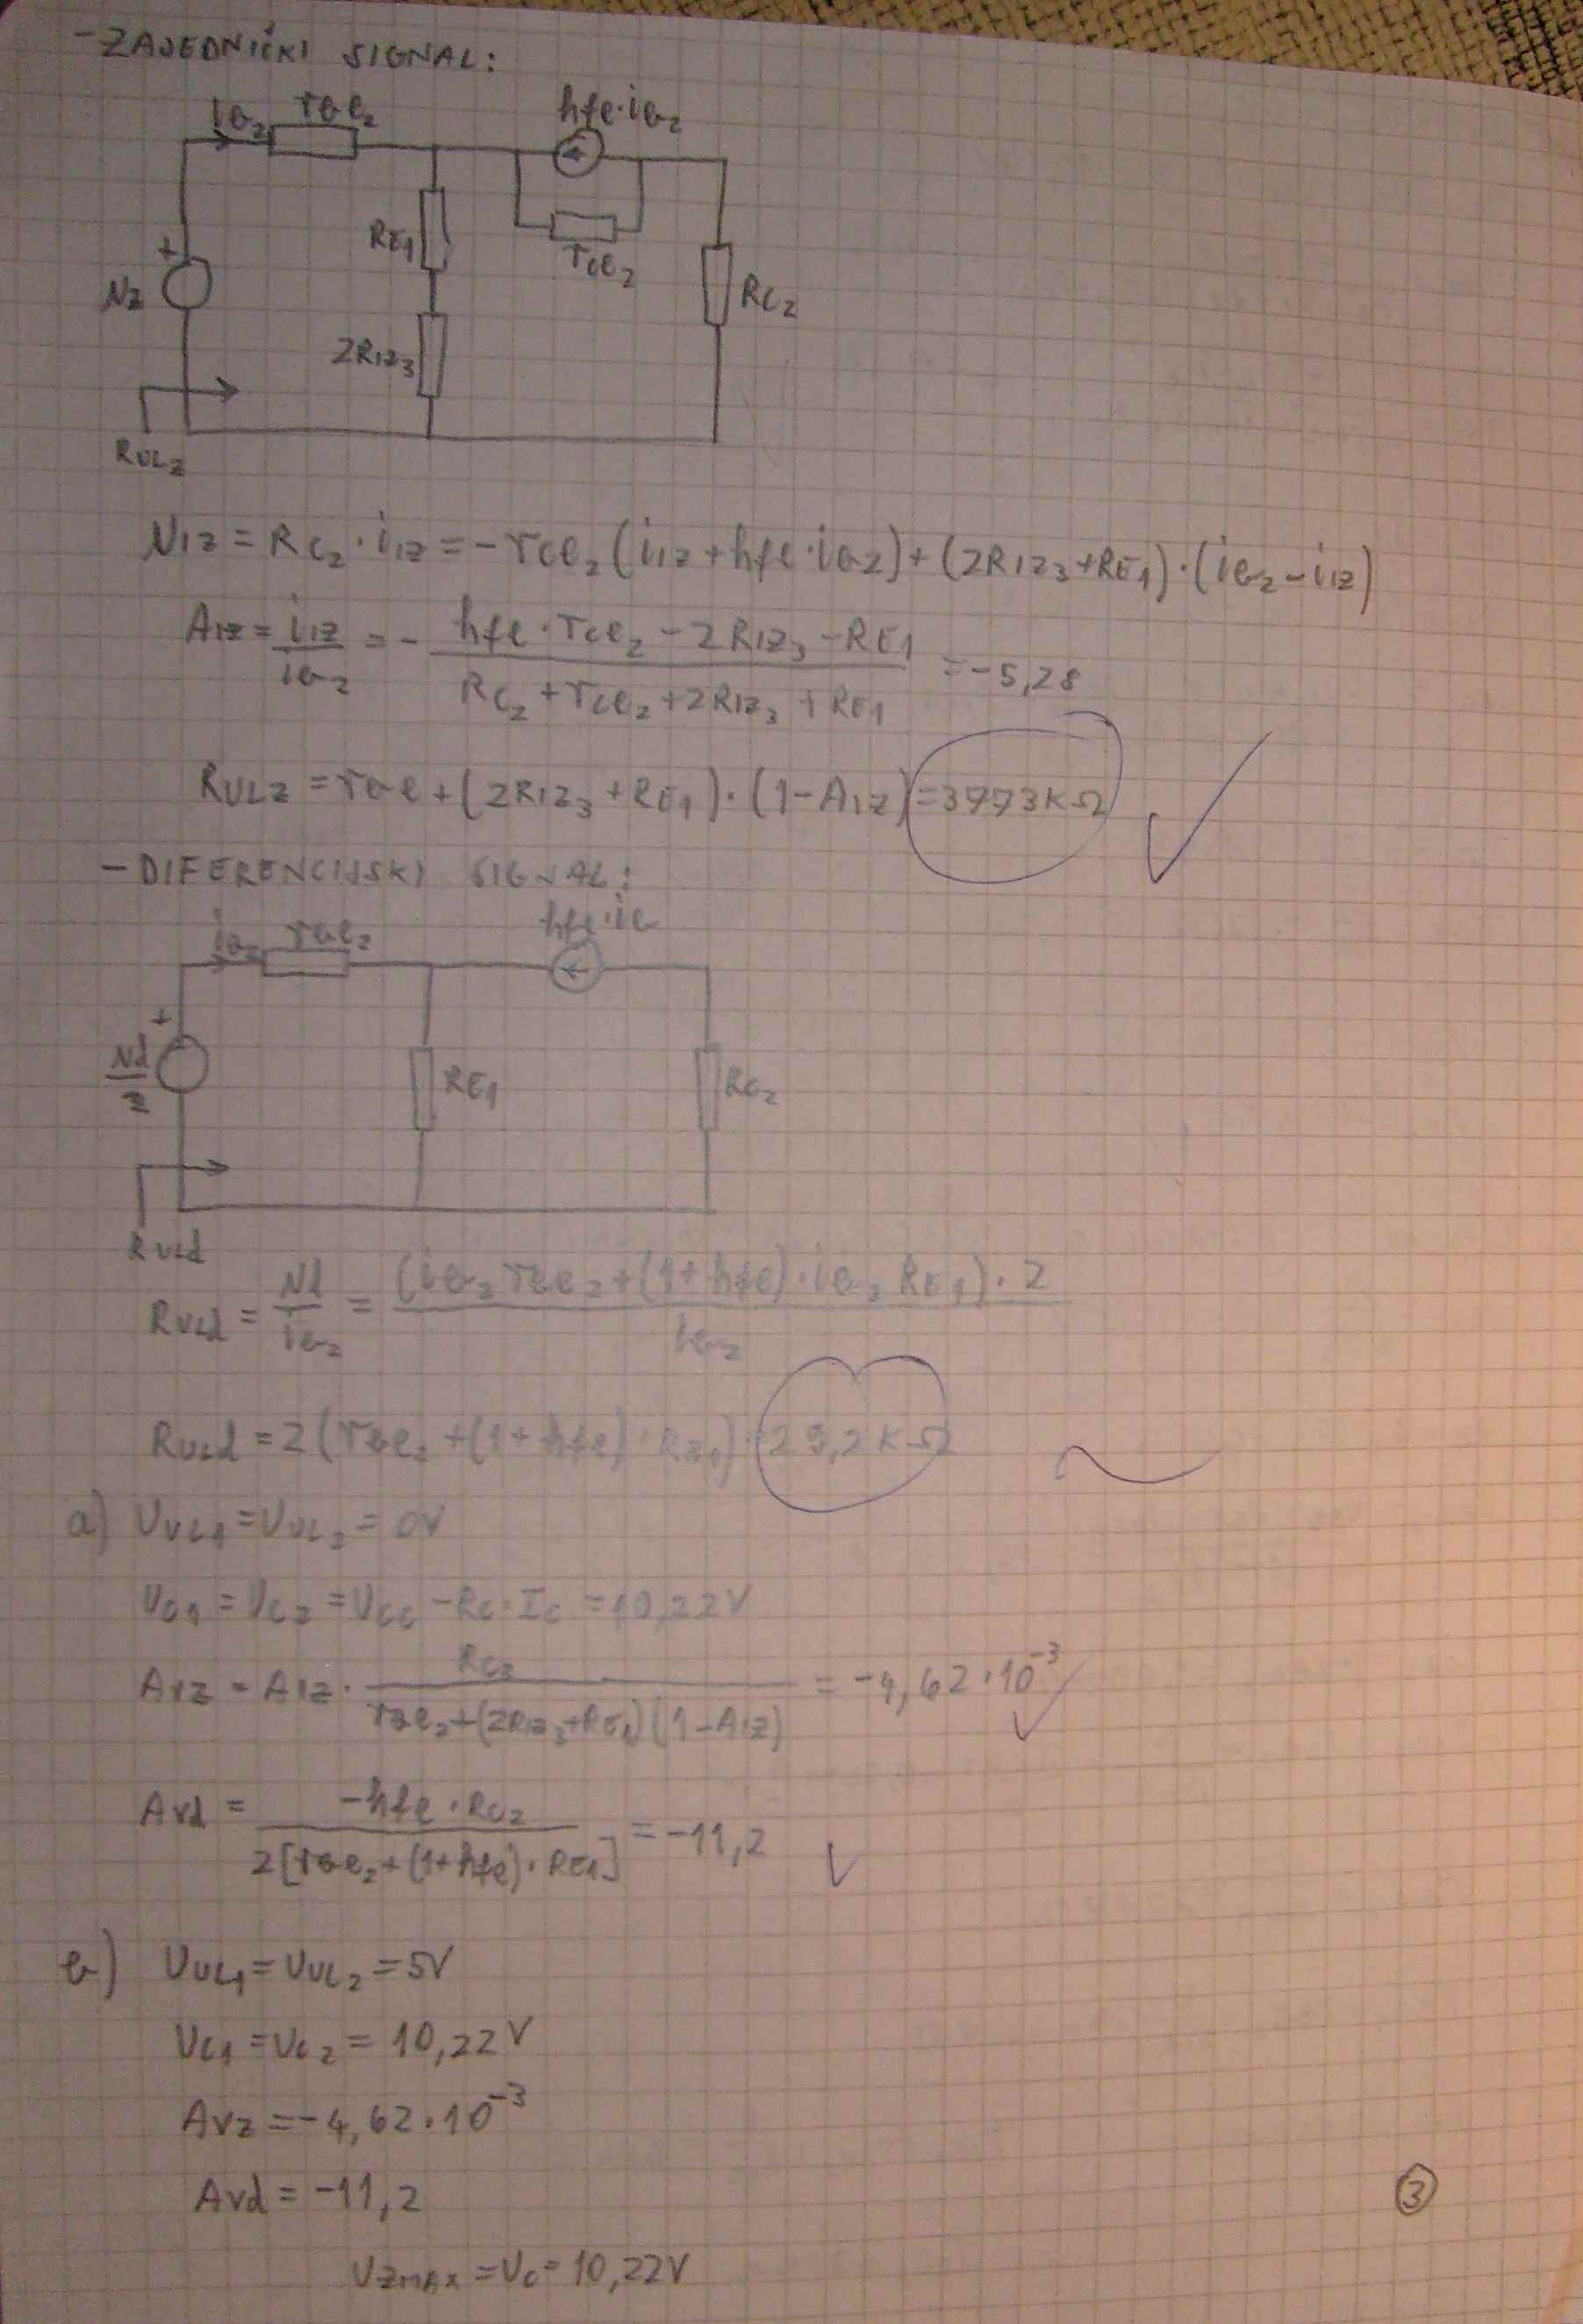 - ZAJEDNIČKI SIGNAL:
iB2 rbe2 hfe·iB2
RE1
rce2
vz RC2
2Riz3
Rulz
viz = RC2·iiz = -rce2(iiz+hfe·iB2)+(2Riz3+RE1)·(iB2-iiz)
AIz = iiz/iB2 = - (hfe·rce2 - 2Riz3 - RE1)/(RC2+rce2+2Riz3+RE1) = -5,28
RULz = rbe+(2Riz3+RE1)·(1-AIz) = 3773KΩ
- DIFERENCIJSKI SIGNAL:
iB2 rbe2 hfe·iB
vd/2 RE1 RC2
Ruld
Ruld = vd/iB2 = ((iB2 rbe2+(1+hfe)·iB2 RE1)·2)/iB2
Ruld = 2(rbe2+(1+hfe)·RE1) = 29,2KΩ
a) UUL1=UUL2 = 0V
UC1 = UC2 = UCC - RC·IC = 10,22V
AVz = AIz· RC2/(rbe2+(2Riz3+RE1)(1-AIz)) = -4,62·10^-3
AVd = -hfe·RC2/(2[rbe2+(1+hfe)·RE1]) = -11,2
b) UUL1=UUL2=5V
UC1=UC2= 10,22V
AVz = -4,62·10^-3
AVd = -11,2
3
UzMAX = UC = 10,22V